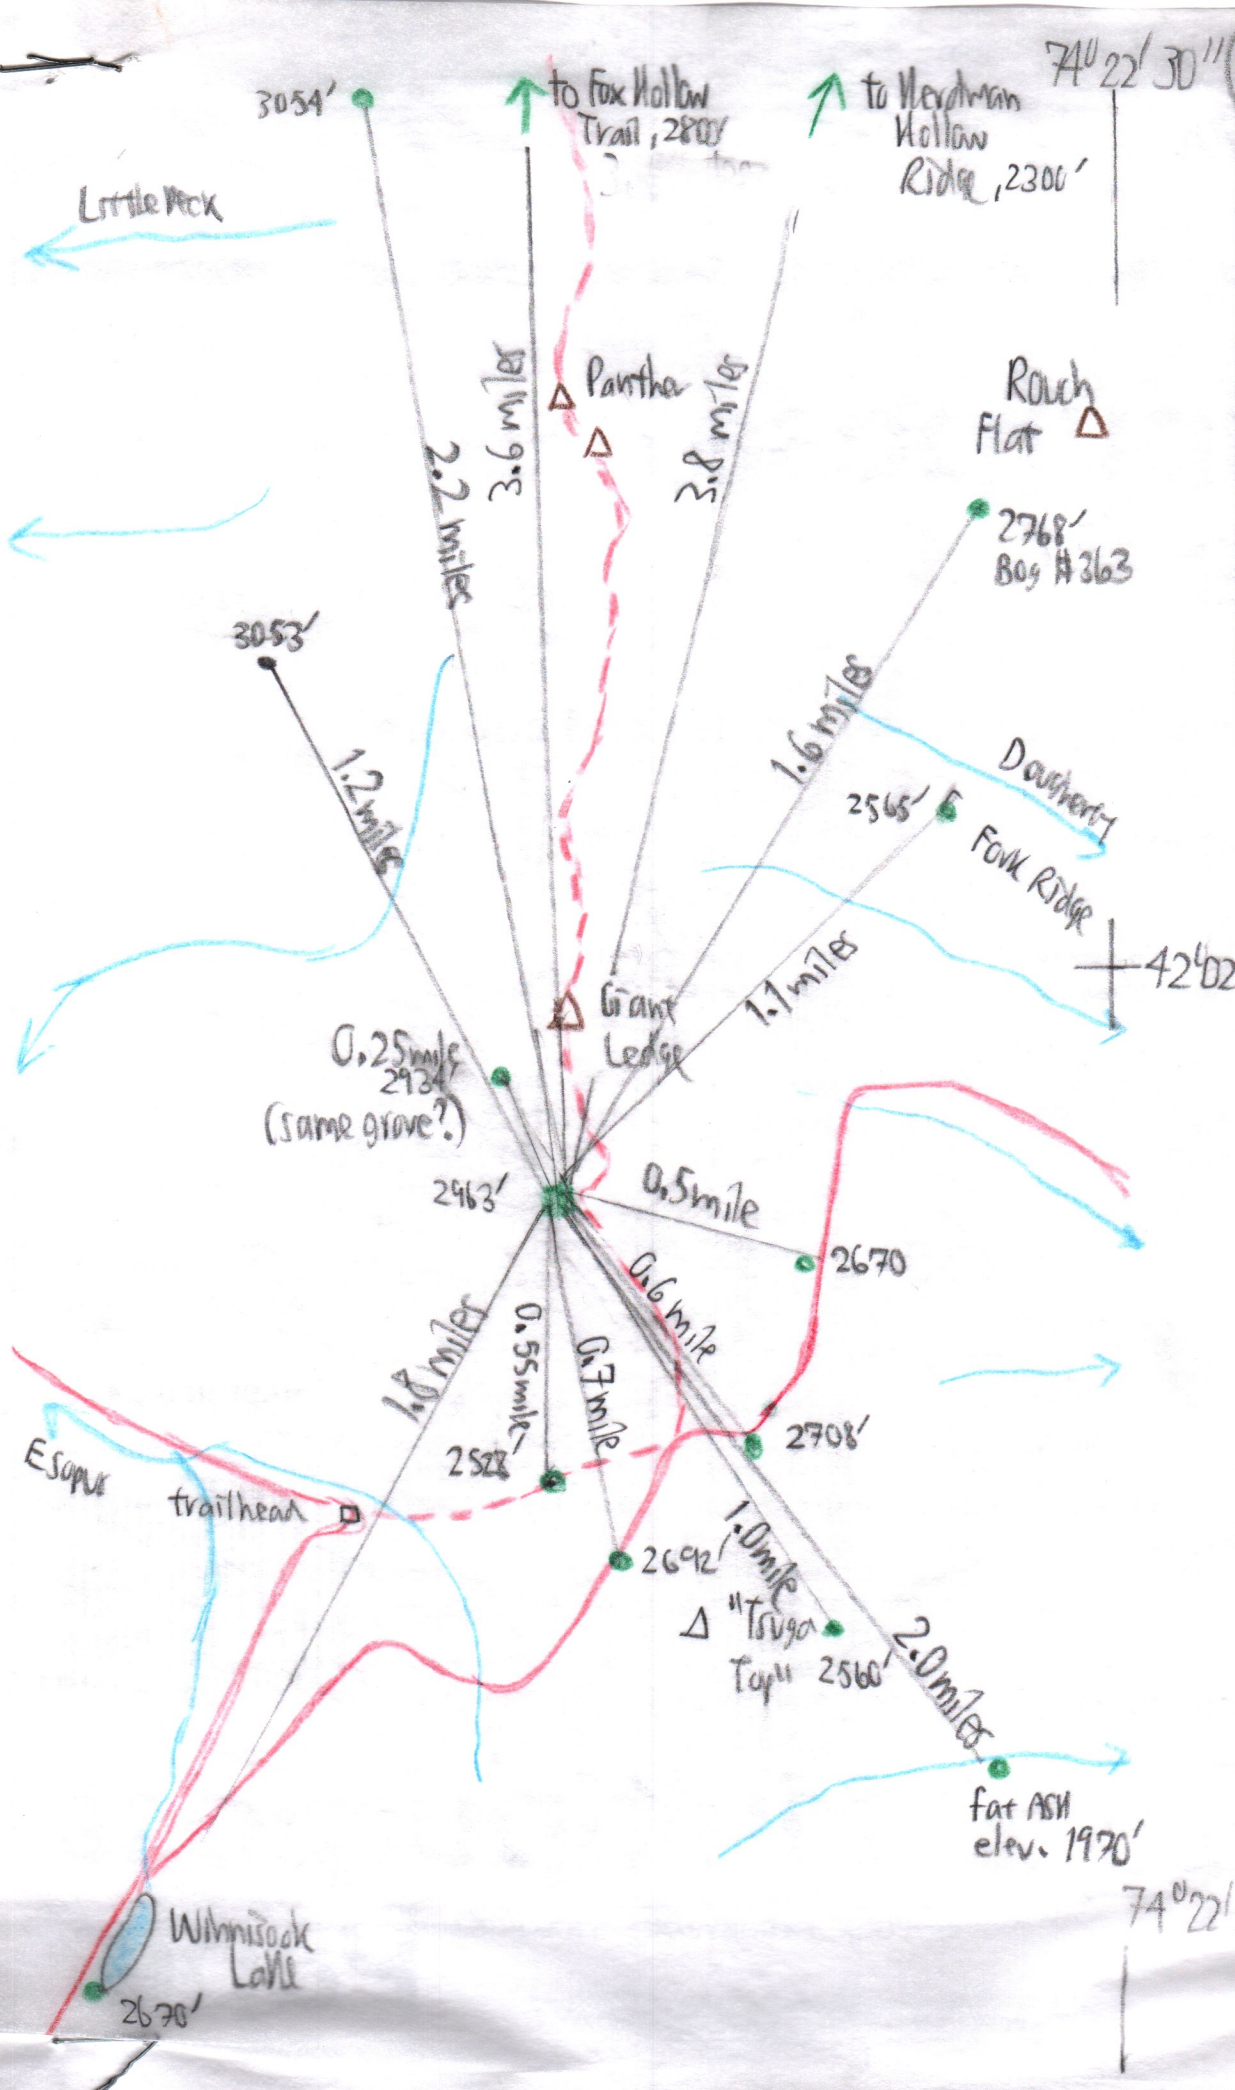 74° 22' 30"
3054'
to Fox Hollow
Trail, 2800'
to Herdman
Hollow
Ridge, 2300'
Little Peck
Panther
Rough
Flat
3.6 miles
3.8 miles
2.2 miles
2768'
Bog #363
3053'
1.2 miles
1.6 miles
Dougherty
2565'
Fork Ridge
1.1 miles
42°02
Giant
Ledge
0.25 mile
2934'
(same grove?)
2963'
0.5 mile
2670
0.6 mile
1.8 miles
0.55 mile
0.7 mile
2708'
Esopus
2528'
trailhead
2692'
1.0 mile
"Tsuga
Top"
2560'
2.0 miles
fat ASH
elev. 1970'
74°22'
Winnisook
Lake
2670'